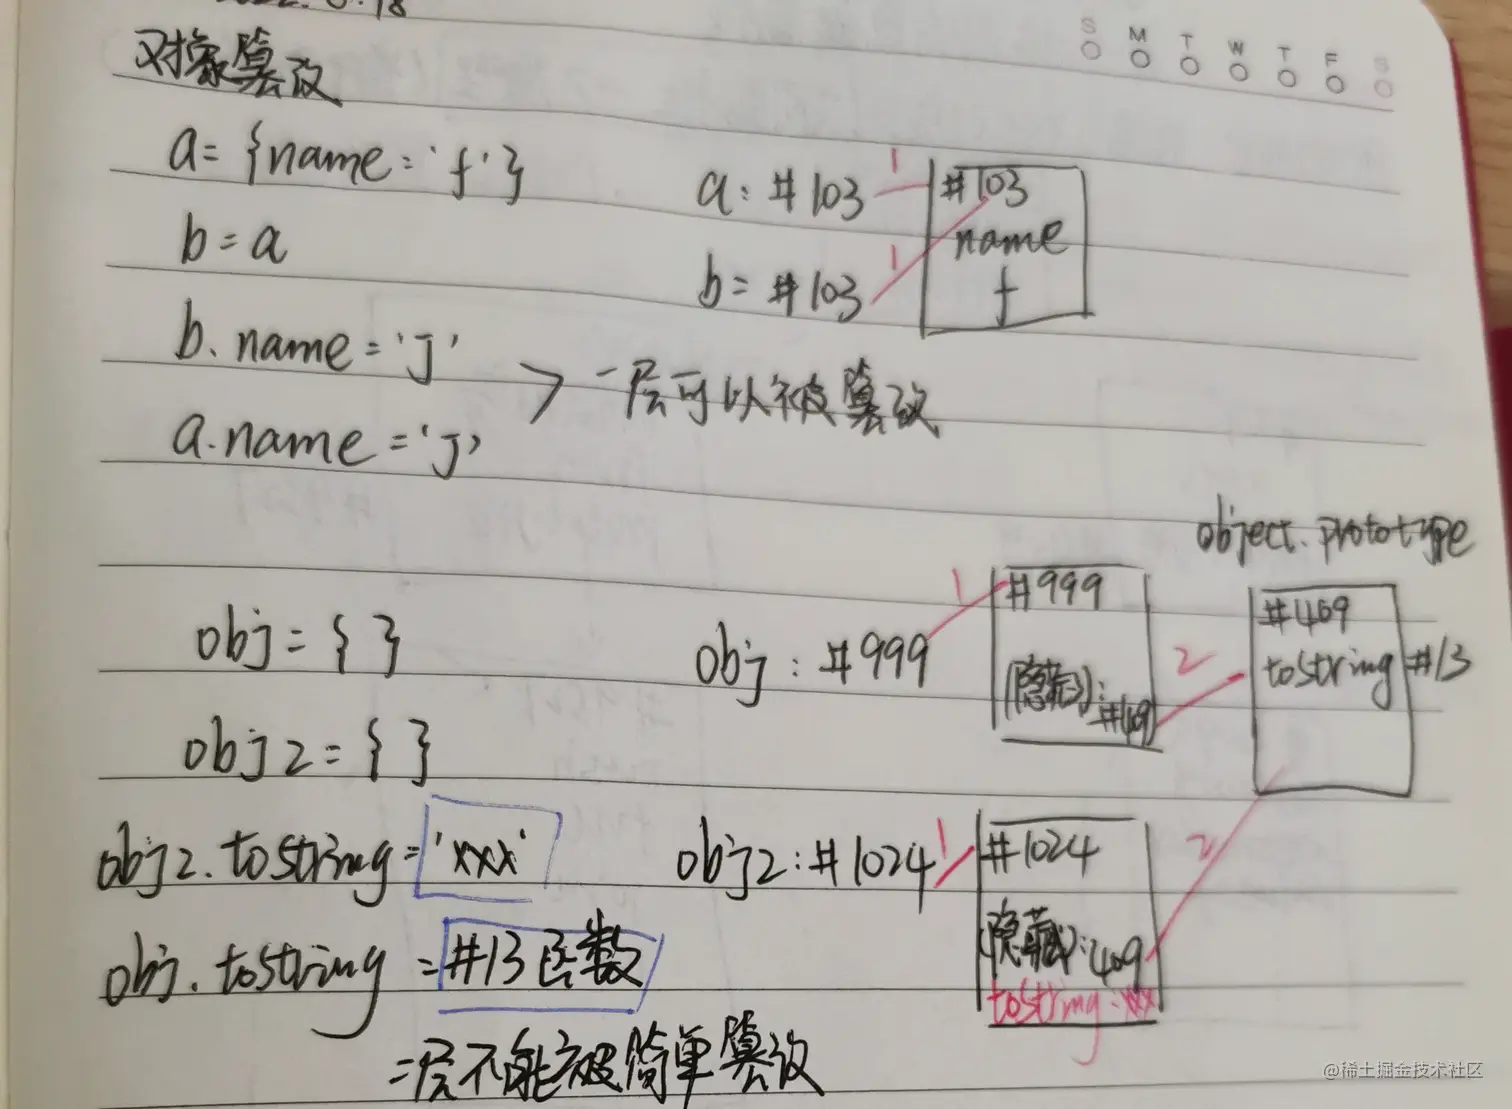 S M T W T F S
对象篡改
a={name:'f'}
a:#103
#103
name
f
1
b=a
b=#103
1
b.name='J'
a.name='J'
一层可以被篡改
object.prototype
obj={}
obj:#999
1
#999
(隐藏):#409
2
#409
tostring #13
obj2={}
obj2.tostring='xxx'
obj2:#1024
1
#1024
(隐藏):409
tostring:xxx
2
obj.tostring=#13函数
二层不能被简单篡改
@稀土掘金技术社区